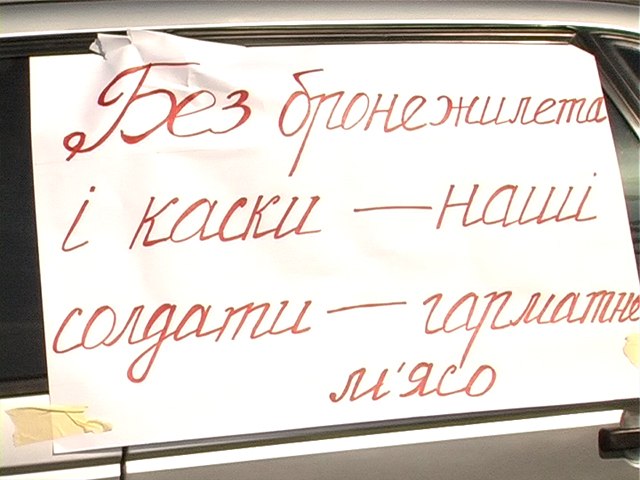 Без бронежилета
і каски — наші
солдати — гарматне
м'ясо